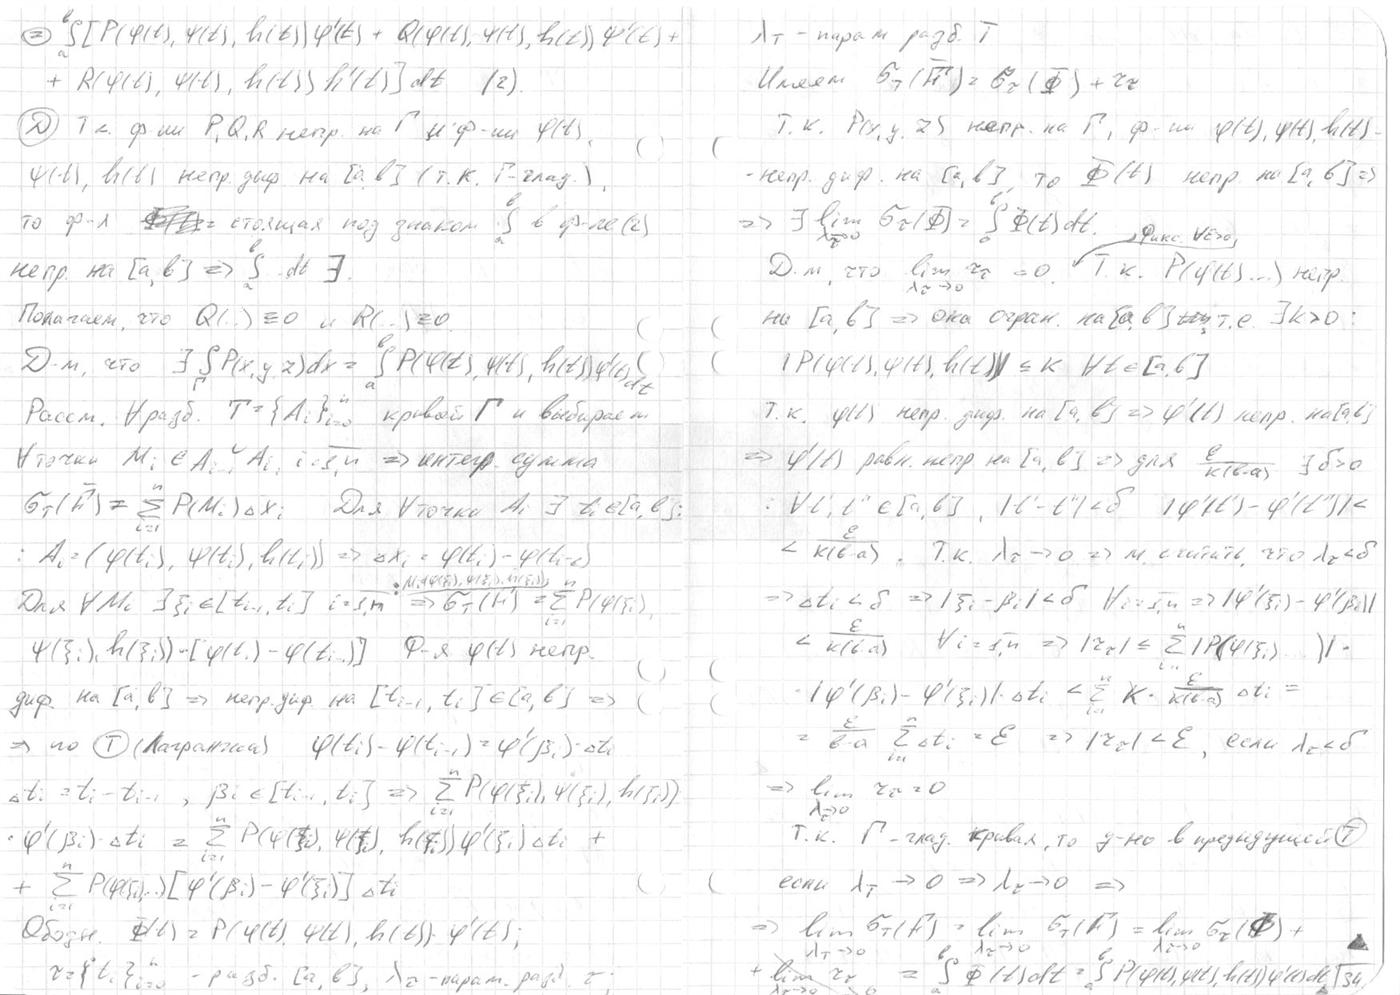 = ∫ₐᵇ [P(φ(t), ψ(t), h(t)) φ'(t) + Q(φ(t), ψ(t), h(t)) ψ'(t) +
+ R(φ(t), ψ(t), h(t)) h'(t)] dt (2).
Д Т.к. ф-ии P, Q, R непр. на Г и ф-ии φ(t),
ψ(t), h(t) непр. диф. на [a, b] (т.к. Г-глад.),
то ф-я стоящая под знаком ∫ₐᵇ в ф-ле (2)
непр. на [a, b] => ∫ₐᵇ dt ∃.
Полагаем, что Q(..) ≡ 0 и R(..) ≡ 0
Д-м, что ∃ ∫_Г P(x, y, z)dx = ∫ₐᵇ P(φ(t), ψ(t), h(t)) φ'(t) dt
Рассм. ∀ разб. T = {A_i}ⁿ_{i=0} кривой Г и выбираем
∀ точки M_i ∈ A_{i-1}◡A_i, i=1,n => интегр. сумма
σ_T(F̄) = Σⁿ_{i=1} P(M_i) Δx_i Для ∀ точки A_i ∃ t_i ∈ [a, b]:
: A_i = (φ(t_i), ψ(t_i), h(t_i)) => Δx_i = φ(t_i) - φ(t_{i-1})
Для ∀ M_i ∃ ξ_i ∈ [t_{i-1}, t_i] i=1,n : M_i(φ(ξ_i), ψ(ξ_i), h(ξ_i)) => σ_T(F̄) = Σⁿ_{i=1} P(φ(ξ_i),
ψ(ξ_i), h(ξ_i))·[φ(t_i) - φ(t_{i-1})] Ф-я φ(t) непр.
диф. на [a, b] => непр. диф. на [t_{i-1}, t_i] ∈ [a, b] =>
=> по Т (Лагранжа) φ(t_i) - φ(t_{i-1}) = φ'(β_i)·Δt_i
Δt_i = t_i - t_{i-1}, β_i ∈ [t_{i-1}, t_i] => Σⁿ_{i=1} P(φ(ξ_i), ψ(ξ_i), h(ξ_i))·
· φ'(β_i)·Δt_i = Σⁿ_{i=1} P(φ(ξ_i), ψ(ξ_i), h(ξ_i)) φ'(ξ_i) Δt_i +
+ Σⁿ_{i=1} P(φ(ξ_i)..)[φ'(β_i) - φ'(ξ_i)] Δt_i
Обозн. Φ(t) = P(φ(t), ψ(t), h(t))· φ'(t);
τ = {t_i}ⁿ_{i=0} - разб. [a, b], λ_τ - парам. разб. τ;
λ_T - парам разб. T
Имеем σ_T(F̄) = σ_τ(Φ) + r_τ
Т.к. P(x, y, z) непр. на Г, ф-ии φ(t), ψ(t), h(t) -
- непр. диф. на [a, b], то Φ(t) непр. на [a, b] =>
=> ∃ lim_{λ_τ→0} σ_τ(Φ) = ∫ₐᵇ Φ(t) dt.
Фикс. ∀ε>0,
Д-м, что lim_{λ_τ→0} r_τ = 0. Т.к. P(φ(t)...) непр.
на [a, b] => она огран. на [a, b] т.е. ∃ k>0 :
|P(φ(t), ψ(t), h(t))| ≤ k ∀ t ∈ [a, b]
Т.к. φ(t) непр. диф. на [a, b] => φ'(t) непр. на [a, b]
=> φ'(t) равн. непр на [a, b] => для ε/k(b-a) ∃ δ>0
: ∀ t', t'' ∈ [a, b], |t' - t''| < δ |φ'(t') - φ'(t'')| <
< ε/k(b-a). Т.к. λ_τ → 0 => м. считать, что λ_τ < δ
=> Δt_i < δ => |ξ_i - β_i| < δ ∀ i=1,n => |φ'(ξ_i) - φ'(β_i)|
< ε/k(b-a) ∀ i=1,n => |r_τ| ≤ Σⁿ_{i=1} |P(φ(ξ_i)...)| ·
· |φ'(β_i) - φ'(ξ_i)|· Δt_i < Σⁿ_{i=1} k · ε/k(b-a) Δt_i =
= ε/b-a Σⁿ_{i=1} Δt_i = ε => |r_τ| < ε, если λ_τ < δ
=> lim_{λ_τ→0} r_τ = 0
Т.к. Г - глад. кривая, то д-но в предыдущей Т
если λ_T → 0 => λ_τ → 0 =>
=> lim_{λ_T→0} σ_T(F̄) = lim_{λ_τ→0} σ_T(F̄) = lim_{λ_τ→0} σ_τ(Φ) +
+ lim_{λ_τ→0} r_τ = ∫ₐᵇ Φ(t) dt = ∫ₐᵇ P(φ(t), ψ(t), h(t)) φ'(t) dt 34